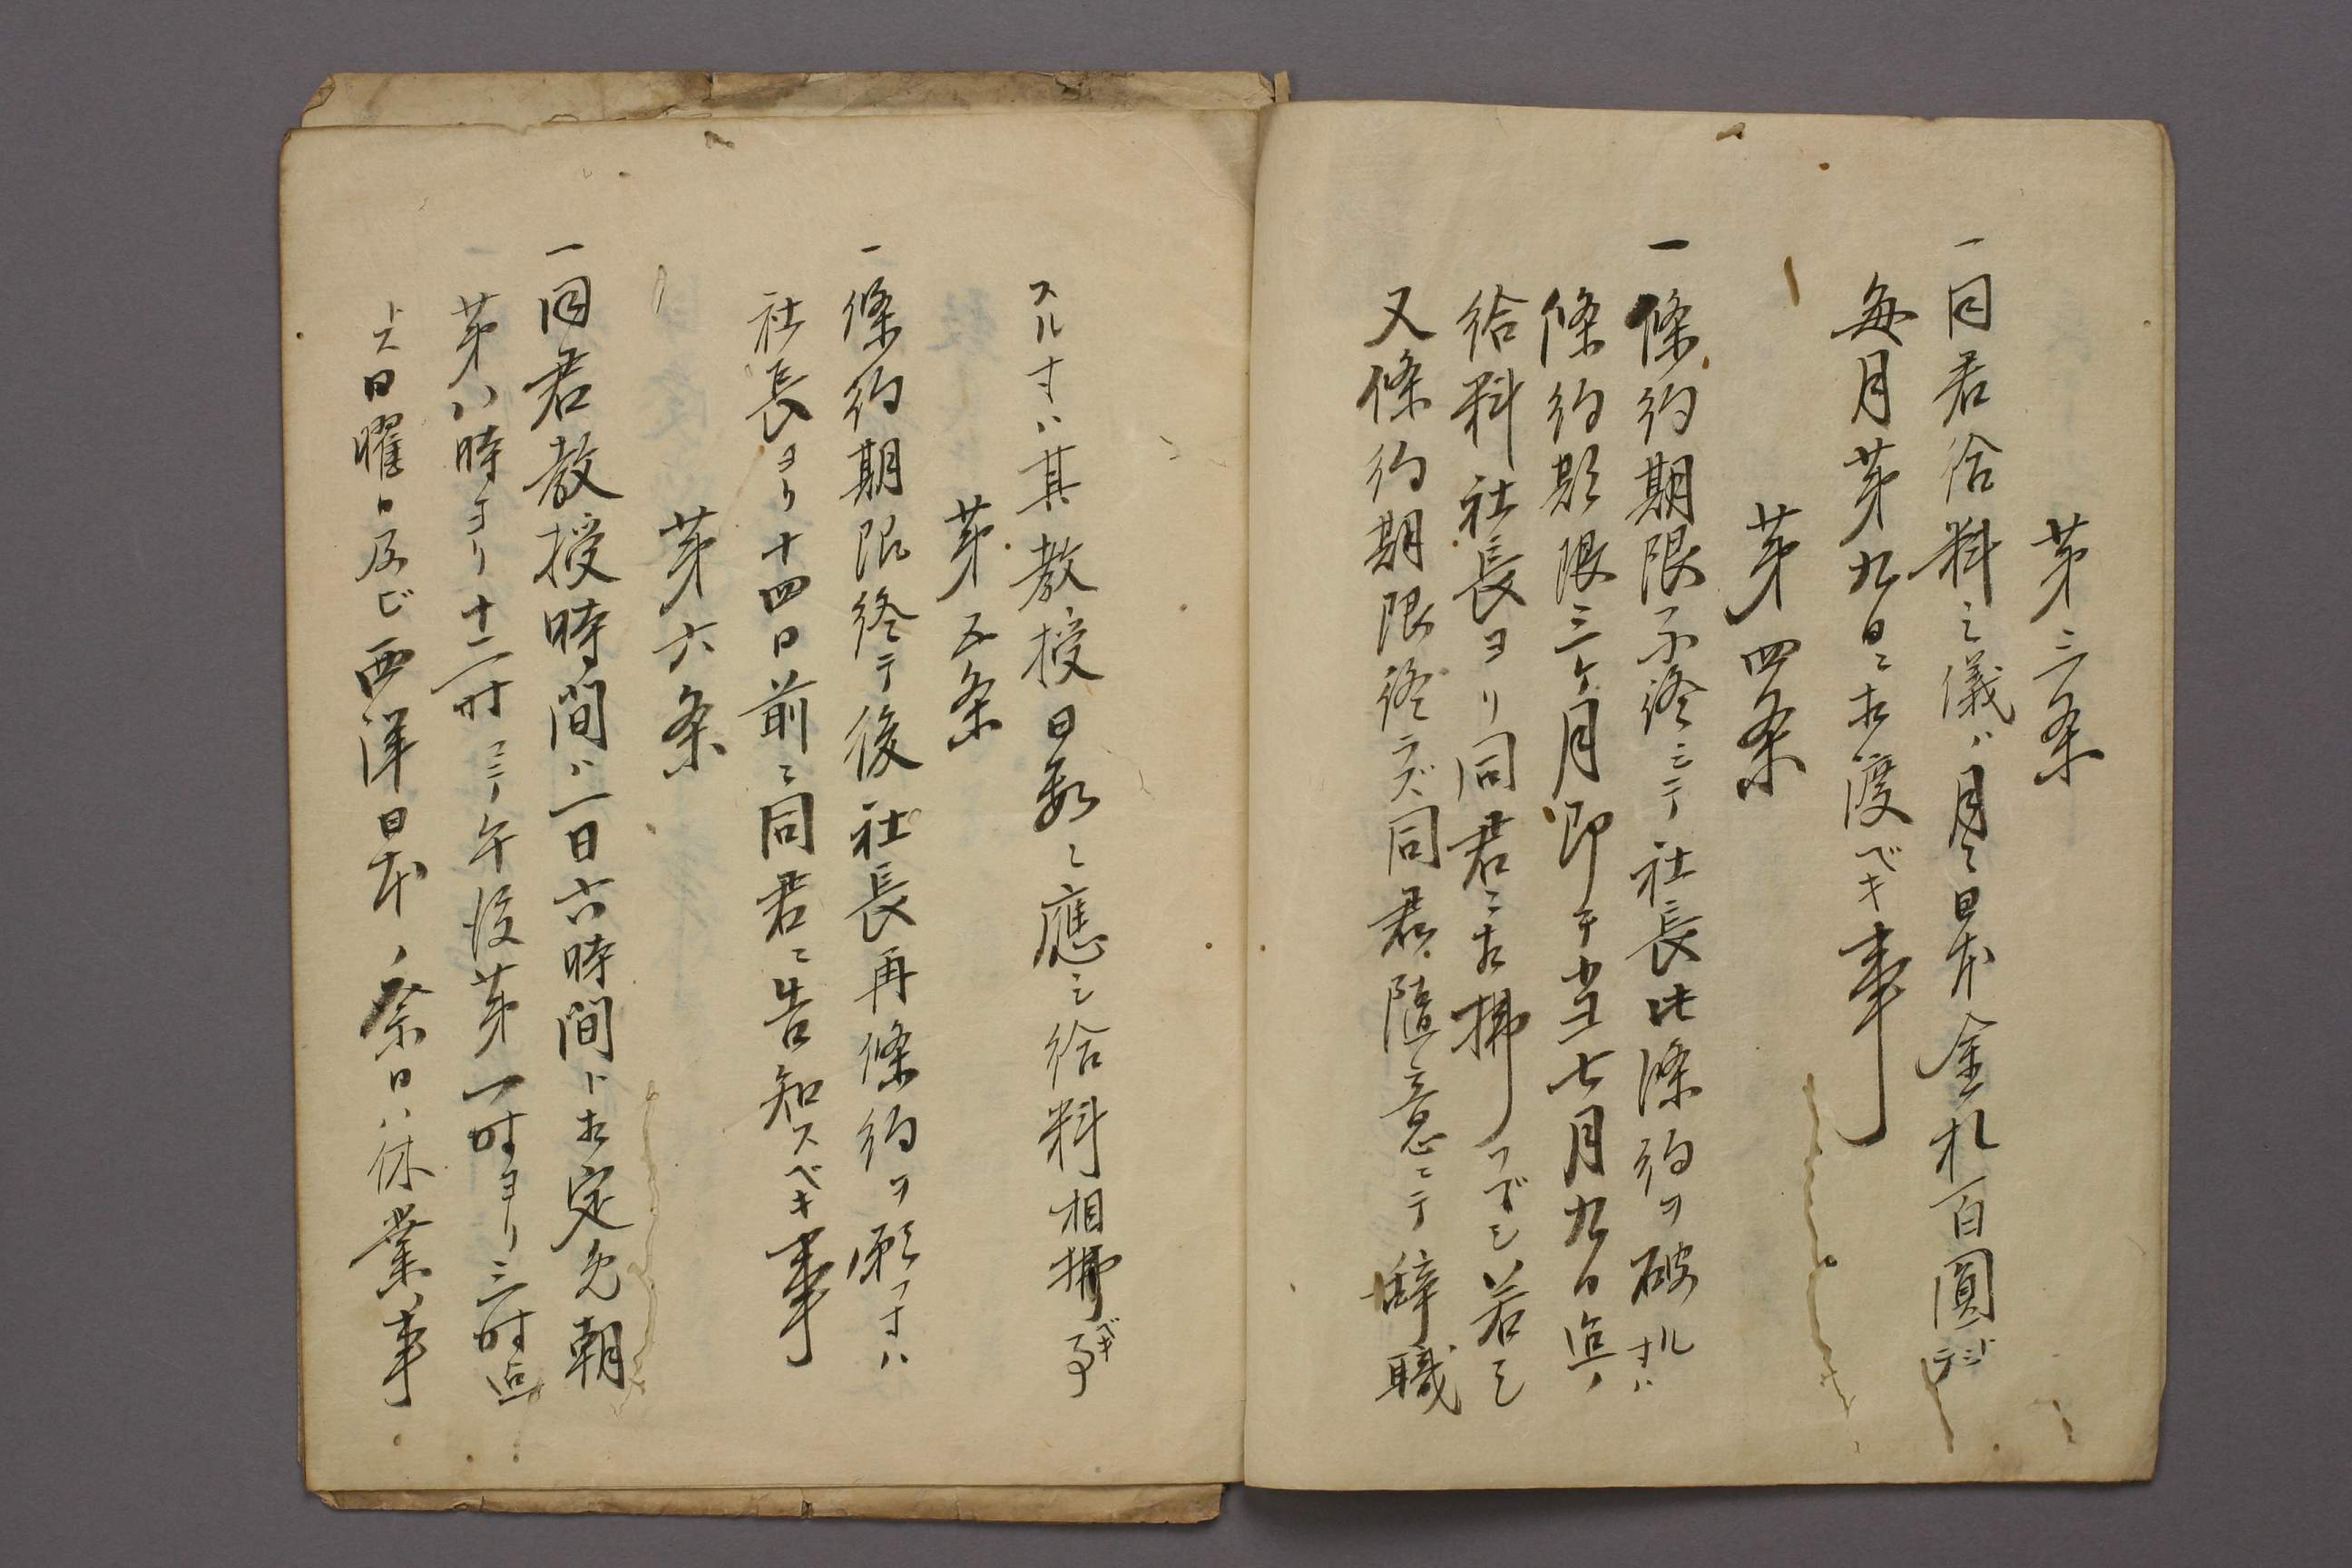 第三条
一同君給料之儀ハ月々日本金札百圓トシテ
毎月第九日ニ相渡ベキ事
第四条
一條約期限不終シテ社長此條約ヲ破ル寸ハ
條約期限三ケ月即チ当七月九日迠ノ
給料社長ヨリ同君ニ相拂フベシ若シ
又條約期限終ラズ同君随意ニテ辞職
スル寸ハ其教授日数ニ應シ給料相拂ベキ事
第五条
一條約期限終テ後社長再條約ヲ願フ寸ハ
社長ヨリ十四日前ニ同君ニ告知スベキ事
第六条
一同君教授時間ハ一日六時間ト相定免朝
第八時ヨリ十二時マテ午後第一時ヨリ三時迠
トス日曜日及ビ西洋日本ノ祭日ハ休業事